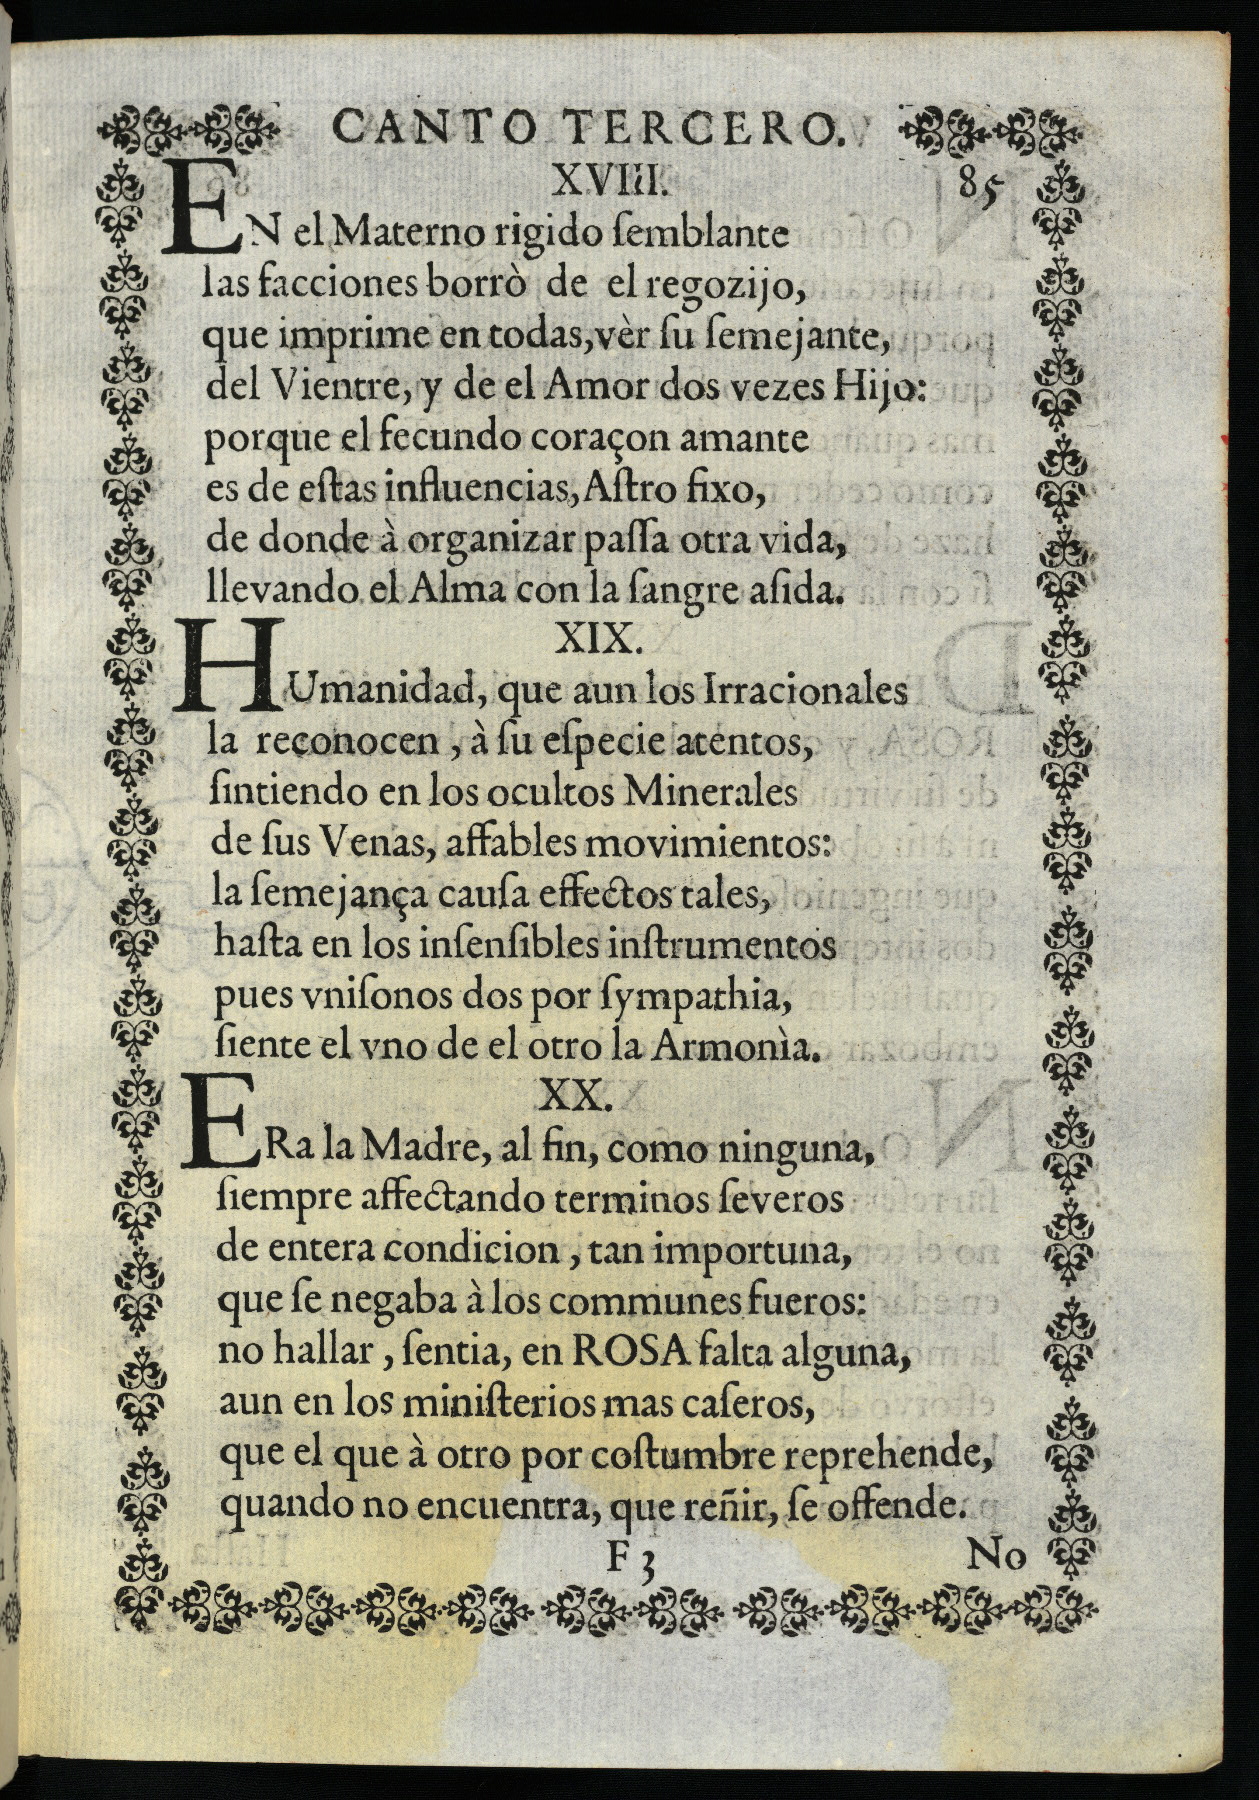 CANTO TERCERO.
XVIII.
85
EN el Materno rigido ſemblante
las facciones borrò de el regozijo,
que imprime en todas, vèr ſu ſemejante,
del Vientre, y de el Amor dos vezes Hijo:
porque el fecundo coraçon amante
es de eſtas influencias, Aſtro fixo,
de donde à organizar paſſa otra vida,
llevando el Alma con la ſangre aſida.
XIX.
HUmanidad, que aun los Irracionales
la reconocen, à ſu eſpecie atentos,
ſintiendo en los ocultos Minerales
de ſus Venas, affables movimientos:
la ſemejança cauſa effectos tales,
haſta en los inſenſibles inſtrumentos
pues vniſonos dos por ſympathia,
ſiente el vno de el otro la Armonìa.
XX.
ERa la Madre, al fin, como ninguna,
ſiempre affectando terminos ſeveros
de entera condicion, tan importuna,
que ſe negaba à los communes fueros:
no hallar, ſentia, en ROSA falta alguna,
aun en los miniſterios mas caſeros,
que el que à otro por coſtumbre reprehende,
quando no encuentra, que reñir, ſe offende.
F 3
No